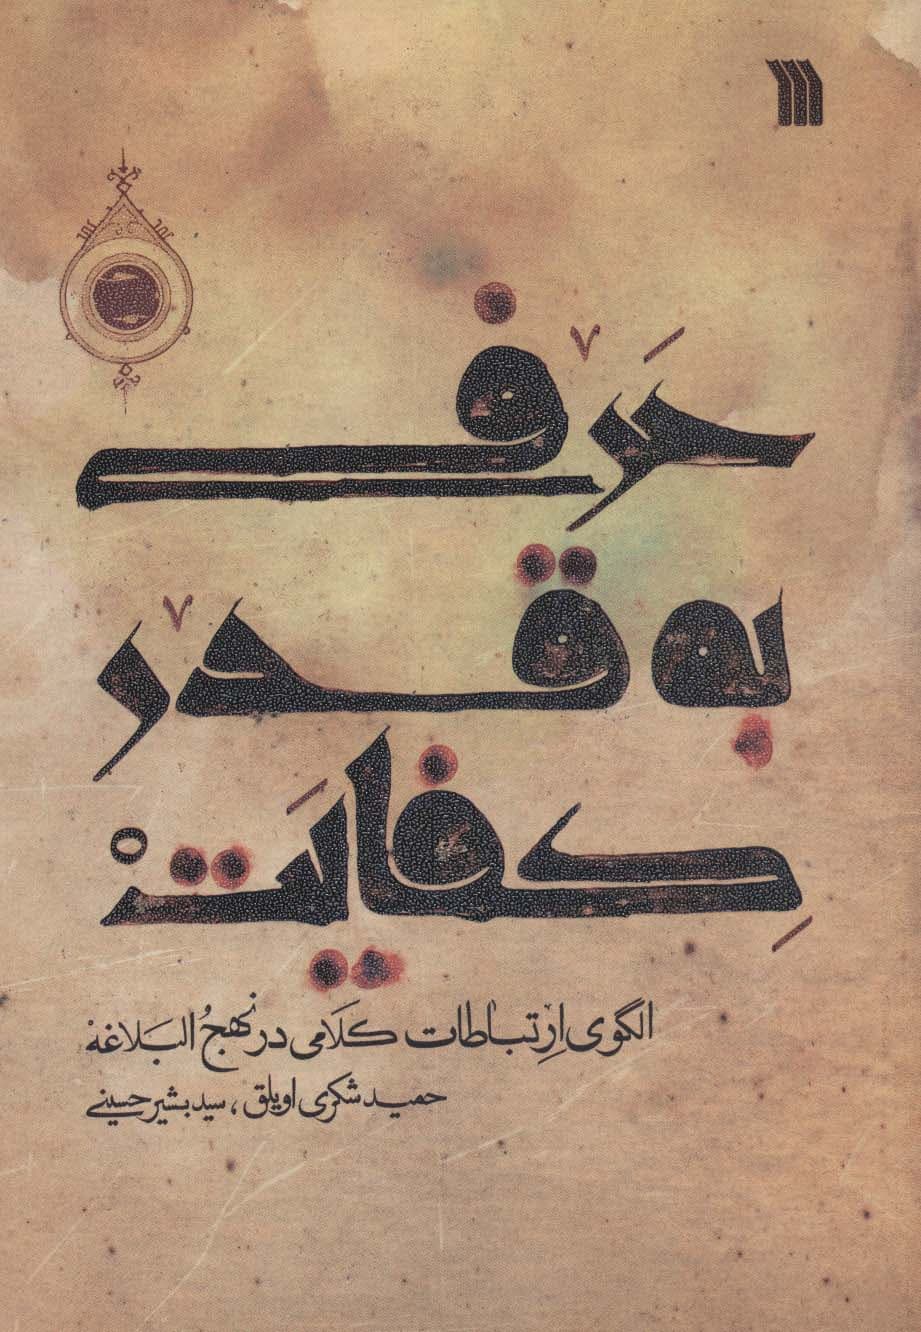 حَرفے
به قدر
کِفایَتْ
الگوی ارِتباطات کلَامی در نهجُ البَلاغهْ
حمید شکری اویلق، سید بشیر حسینی